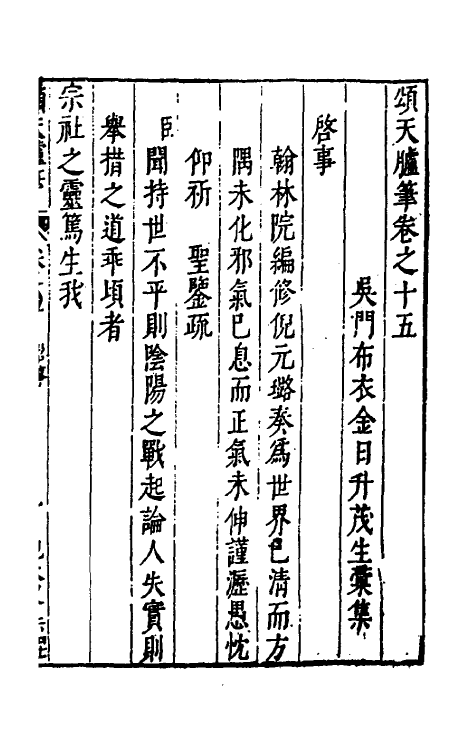 頌天臚筆卷之十五
吳門布衣金日升茂生彙集
啓事
翰林院編修倪元璐奏爲世界已清而方
隅未化邪氣已息而正氣未伸謹瀝愚忱
仰祈　聖鑒疏
臣聞持世不平則陰陽之戰起論人失實則
舉措之道乖頃者
宗社之靈篤生我